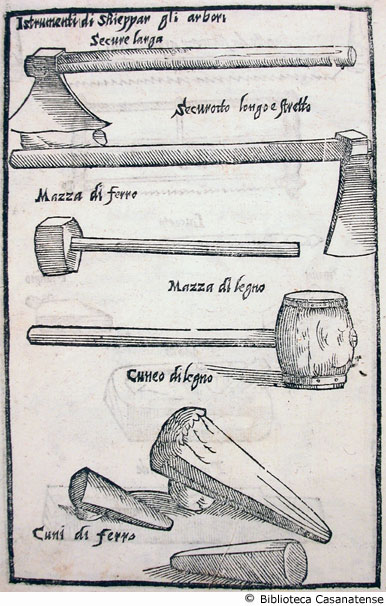 Istrumenti di Skieppar gli arbori
Secure larga
Securotto longo e stretto
Mazza di ferro
Mazza di legno
Cuneo di legno
Cuni di ferro
© Biblioteca Casanatense